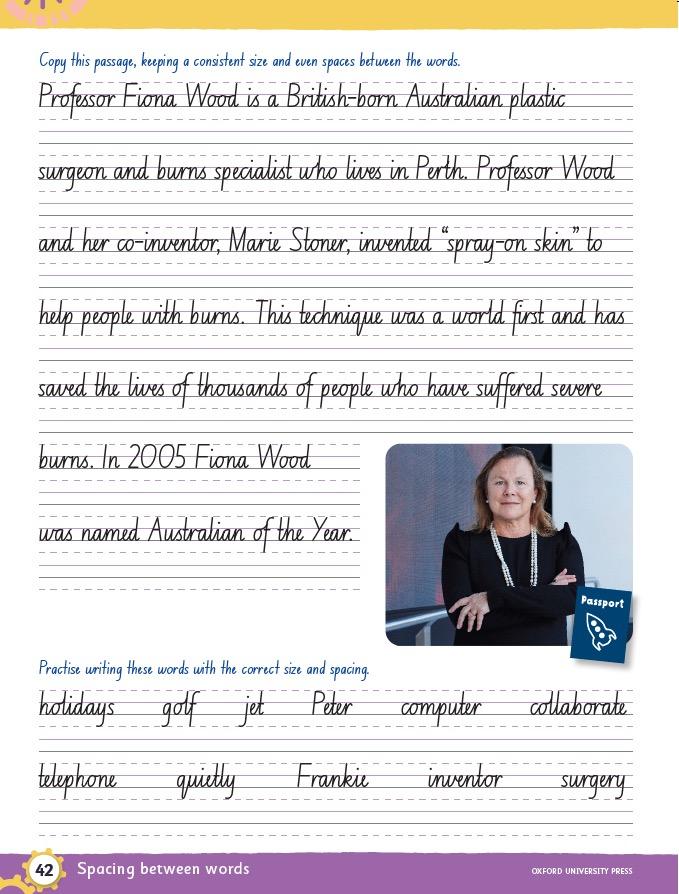 Copy this passage, keeping a consistent size and even spaces between the words.
Professor Fiona Wood is a British-born Australian plastic
surgeon and burns specialist who lives in Perth. Professor Wood
and her co-inventor, Marie Stoner, invented “spray-on skin” to
help people with burns. This technique was a world first and has
saved the lives of thousands of people who have suffered severe
burns. In 2005 Fiona Wood
was named Australian of the Year.
Passport
Practise writing these words with the correct size and spacing.
holidays golf jet Peter computer collaborate
telephone quietly Frankie inventor surgery
42 Spacing between words OXFORD UNIVERSITY PRESS